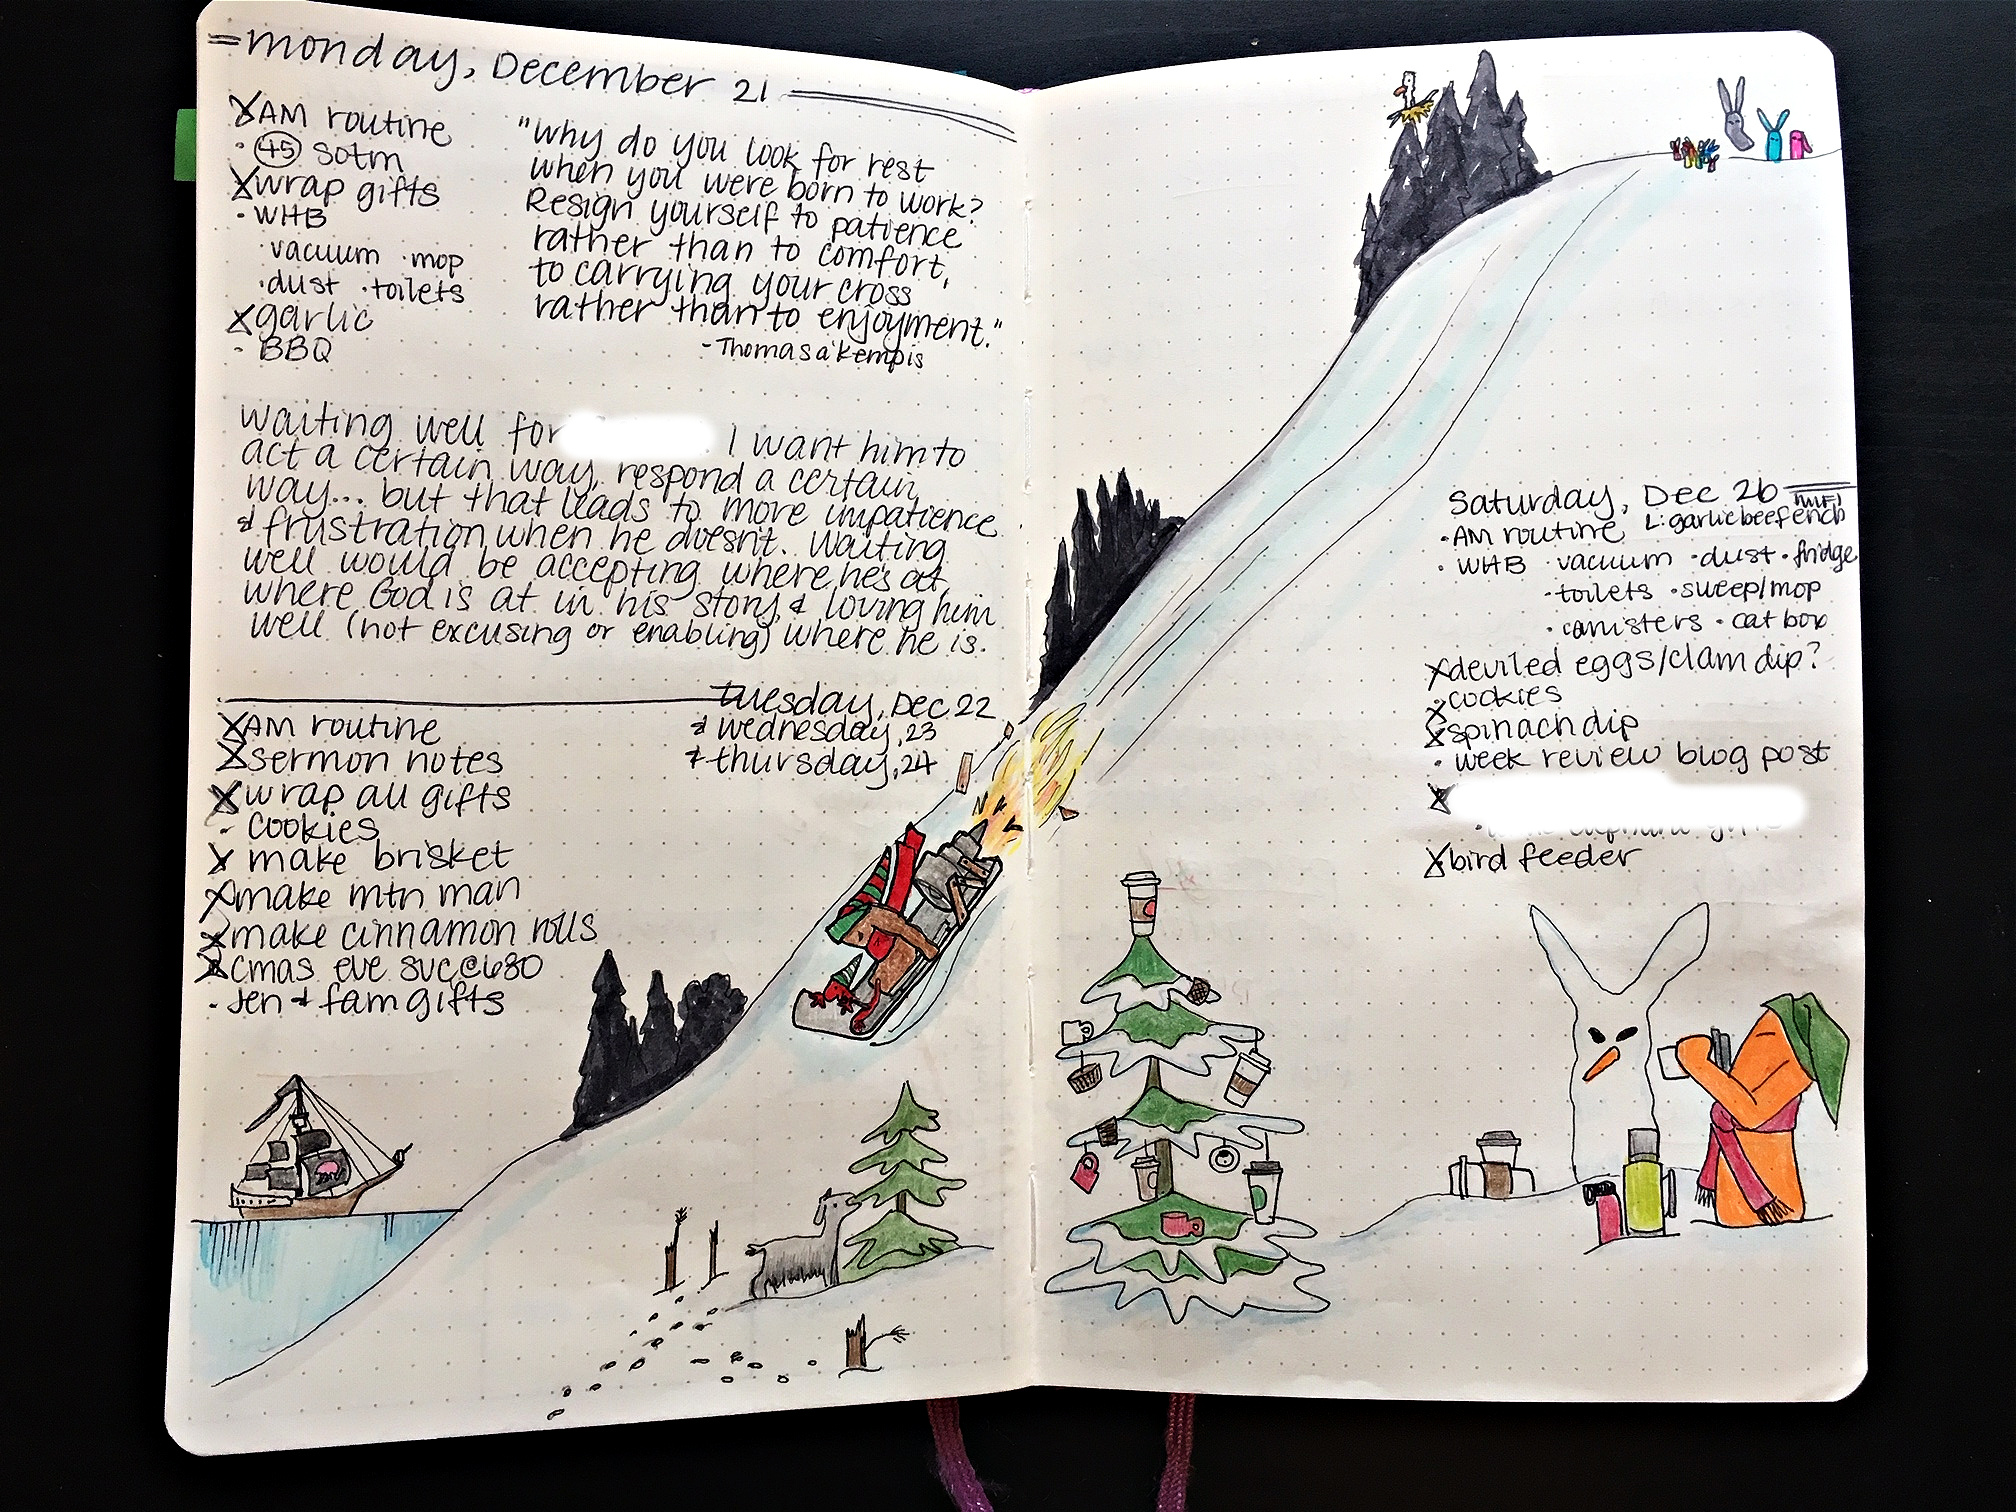 =monday, December 21
X AM routine
· 45 sotm
X wrap gifts
· WHB
· vacuum · mop
· dust · toilets
X garlic
· BBQ
"Why do you look for rest
when you were born to work?
Resign yourself to patience
rather than to comfort,
to carrying your cross
rather than to enjoyment."
- Thomas a'Kempis
waiting well for I want him to
act a certain way, respond a certain
way... but that leads to more impatience
& frustration when he doesn't. Waiting
well would be accepting where he's at,
where God is at in his story, & loving him
well (not excusing or enabling) where he is.
Tuesday, Dec 22
& wednesday, 23
& thursday, 24
X AM routine
X sermon notes
X wrap all gifts
· cookies
X make brisket
X make mtn man
X make cinnamon rolls
X cmas eve svc@630
· Jen & fam gifts
Saturday, Dec 26
· AM routine L: garlic beef ench
· WHB · vacuum · dust · fridge
· toilets · sweep/mop
· canisters · cat box
X deviled eggs/clam dip?
X cookies
X spinach dip
· week review blog post
X
X bird feeder